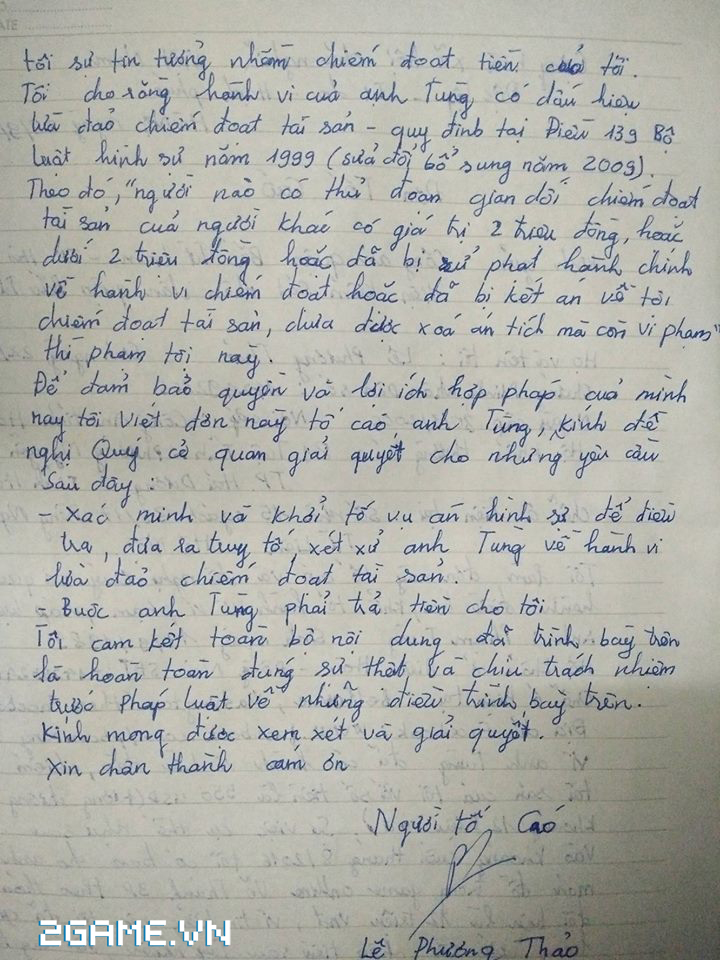 tôi sự tin tưởng nhằm chiếm đoạt tiền của tôi.
Tôi cho rằng hành vi của anh Tùng có dấu hiệu
lừa đảo chiếm đoạt tài sản - quy định tại Điều 139 Bộ
luật hình sự năm 1999 (sửa đổi, bổ sung năm 2009).
Theo đó, "người nào có thủ đoạn gian dối chiếm đoạt
tài sản của người khác có giá trị 2 triệu đồng, hoặc
dưới 2 triệu đồng hoặc đã bị xử phạt hành chính
về hành vi chiếm đoạt hoặc đã bị kết án về tội
chiếm đoạt tài sản, chưa được xoá án tích mà còn vi phạm"
thì phạm tội này.
Để đảm bảo quyền và lợi ích hợp pháp của mình
nay tôi viết đơn này tố cáo anh Tùng, kính đề
nghị Quý cơ quan giải quyết cho những yêu cầu
sau đây:
- Xác minh và khởi tố vụ án hình sự để điều
tra, đưa ra truy tố, xét xử anh Tùng về hành vi
lừa đảo chiếm đoạt tài sản.
- Buộc anh Tùng phải trả tiền cho tôi
Tôi cam kết toàn bộ nội dung đã trình bày trên
là hoàn toàn đúng sự thật và chịu trách nhiệm
trước pháp luật về những điều trình bày trên.
Kính mong được xem xét và giải quyết.
Xin chân thành cảm ơn
Người tố cáo
Lê Phương Thảo
2GAME.VN